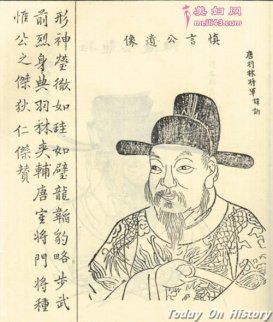 美妇网
慎言公遺像
唐羽林將軍諱
形神瑩徹如珪如璧龍韜豹略步武
前烈身典羽林夾輔唐室將門將種
惟公之傑狄仁傑贊
Today On History